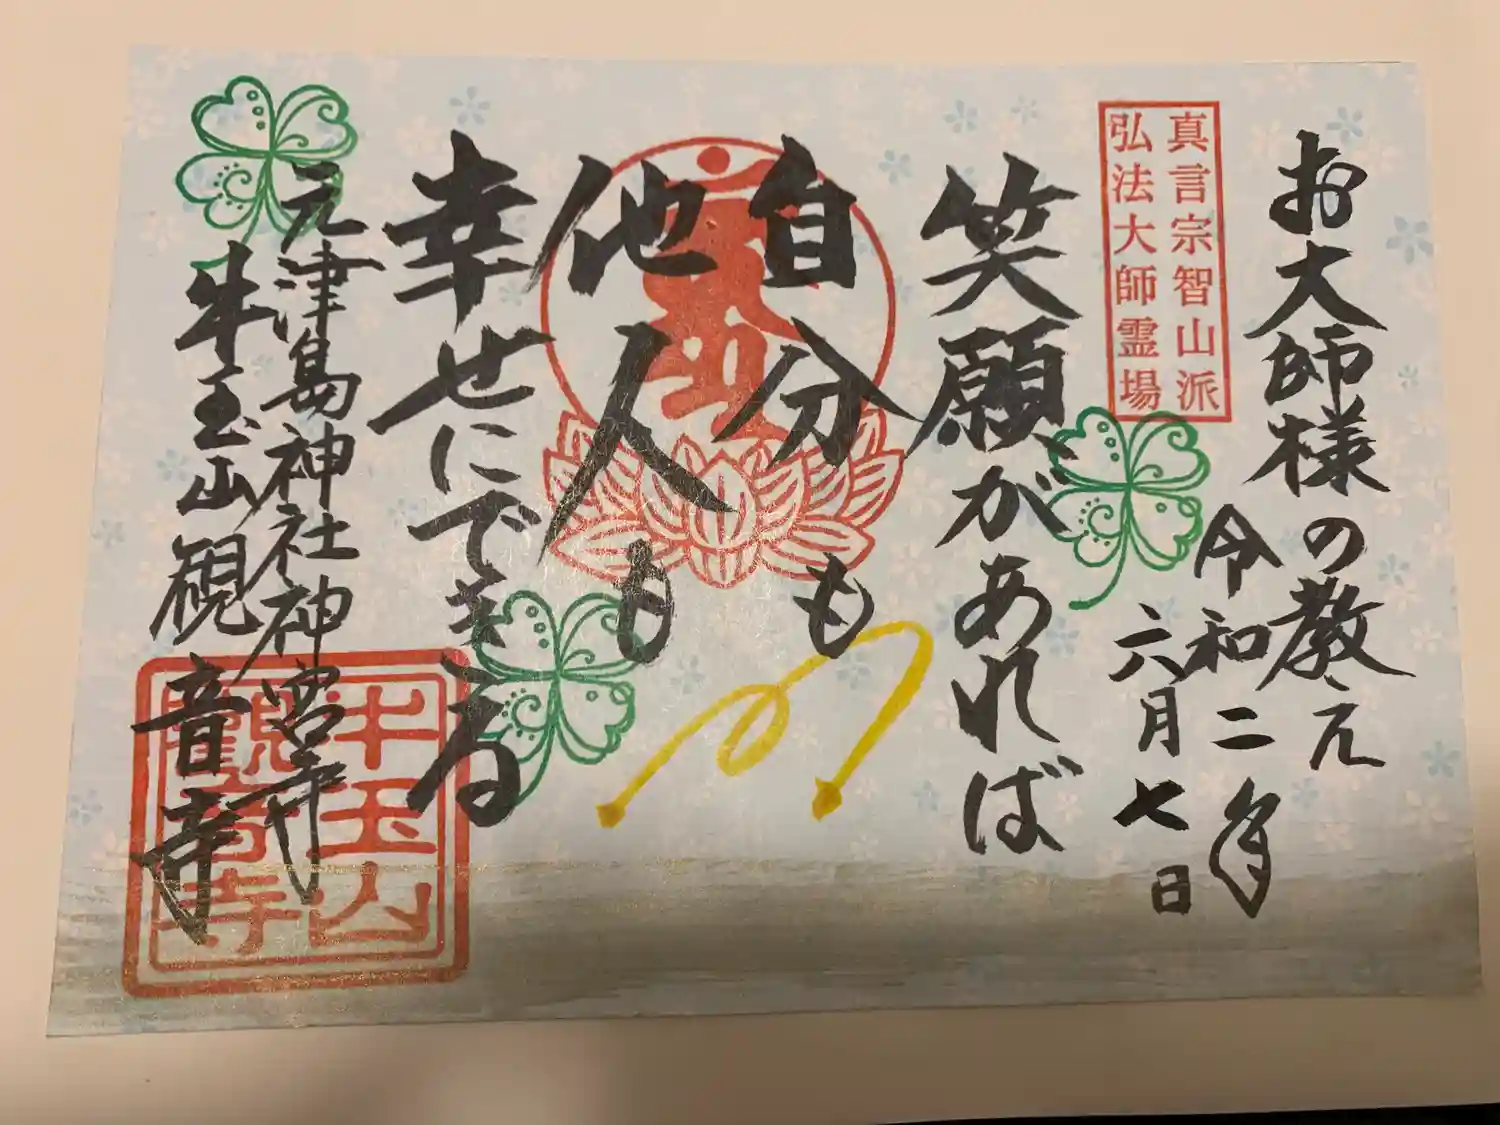 お大師様の教え
真言宗智山派
弘法大師霊場
令和二年
六月七日
笑顔があれば
自分も
他人も
幸せにできる
元津島神社神宮寺
牛玉山観音寺
牛玉山
觀音寺